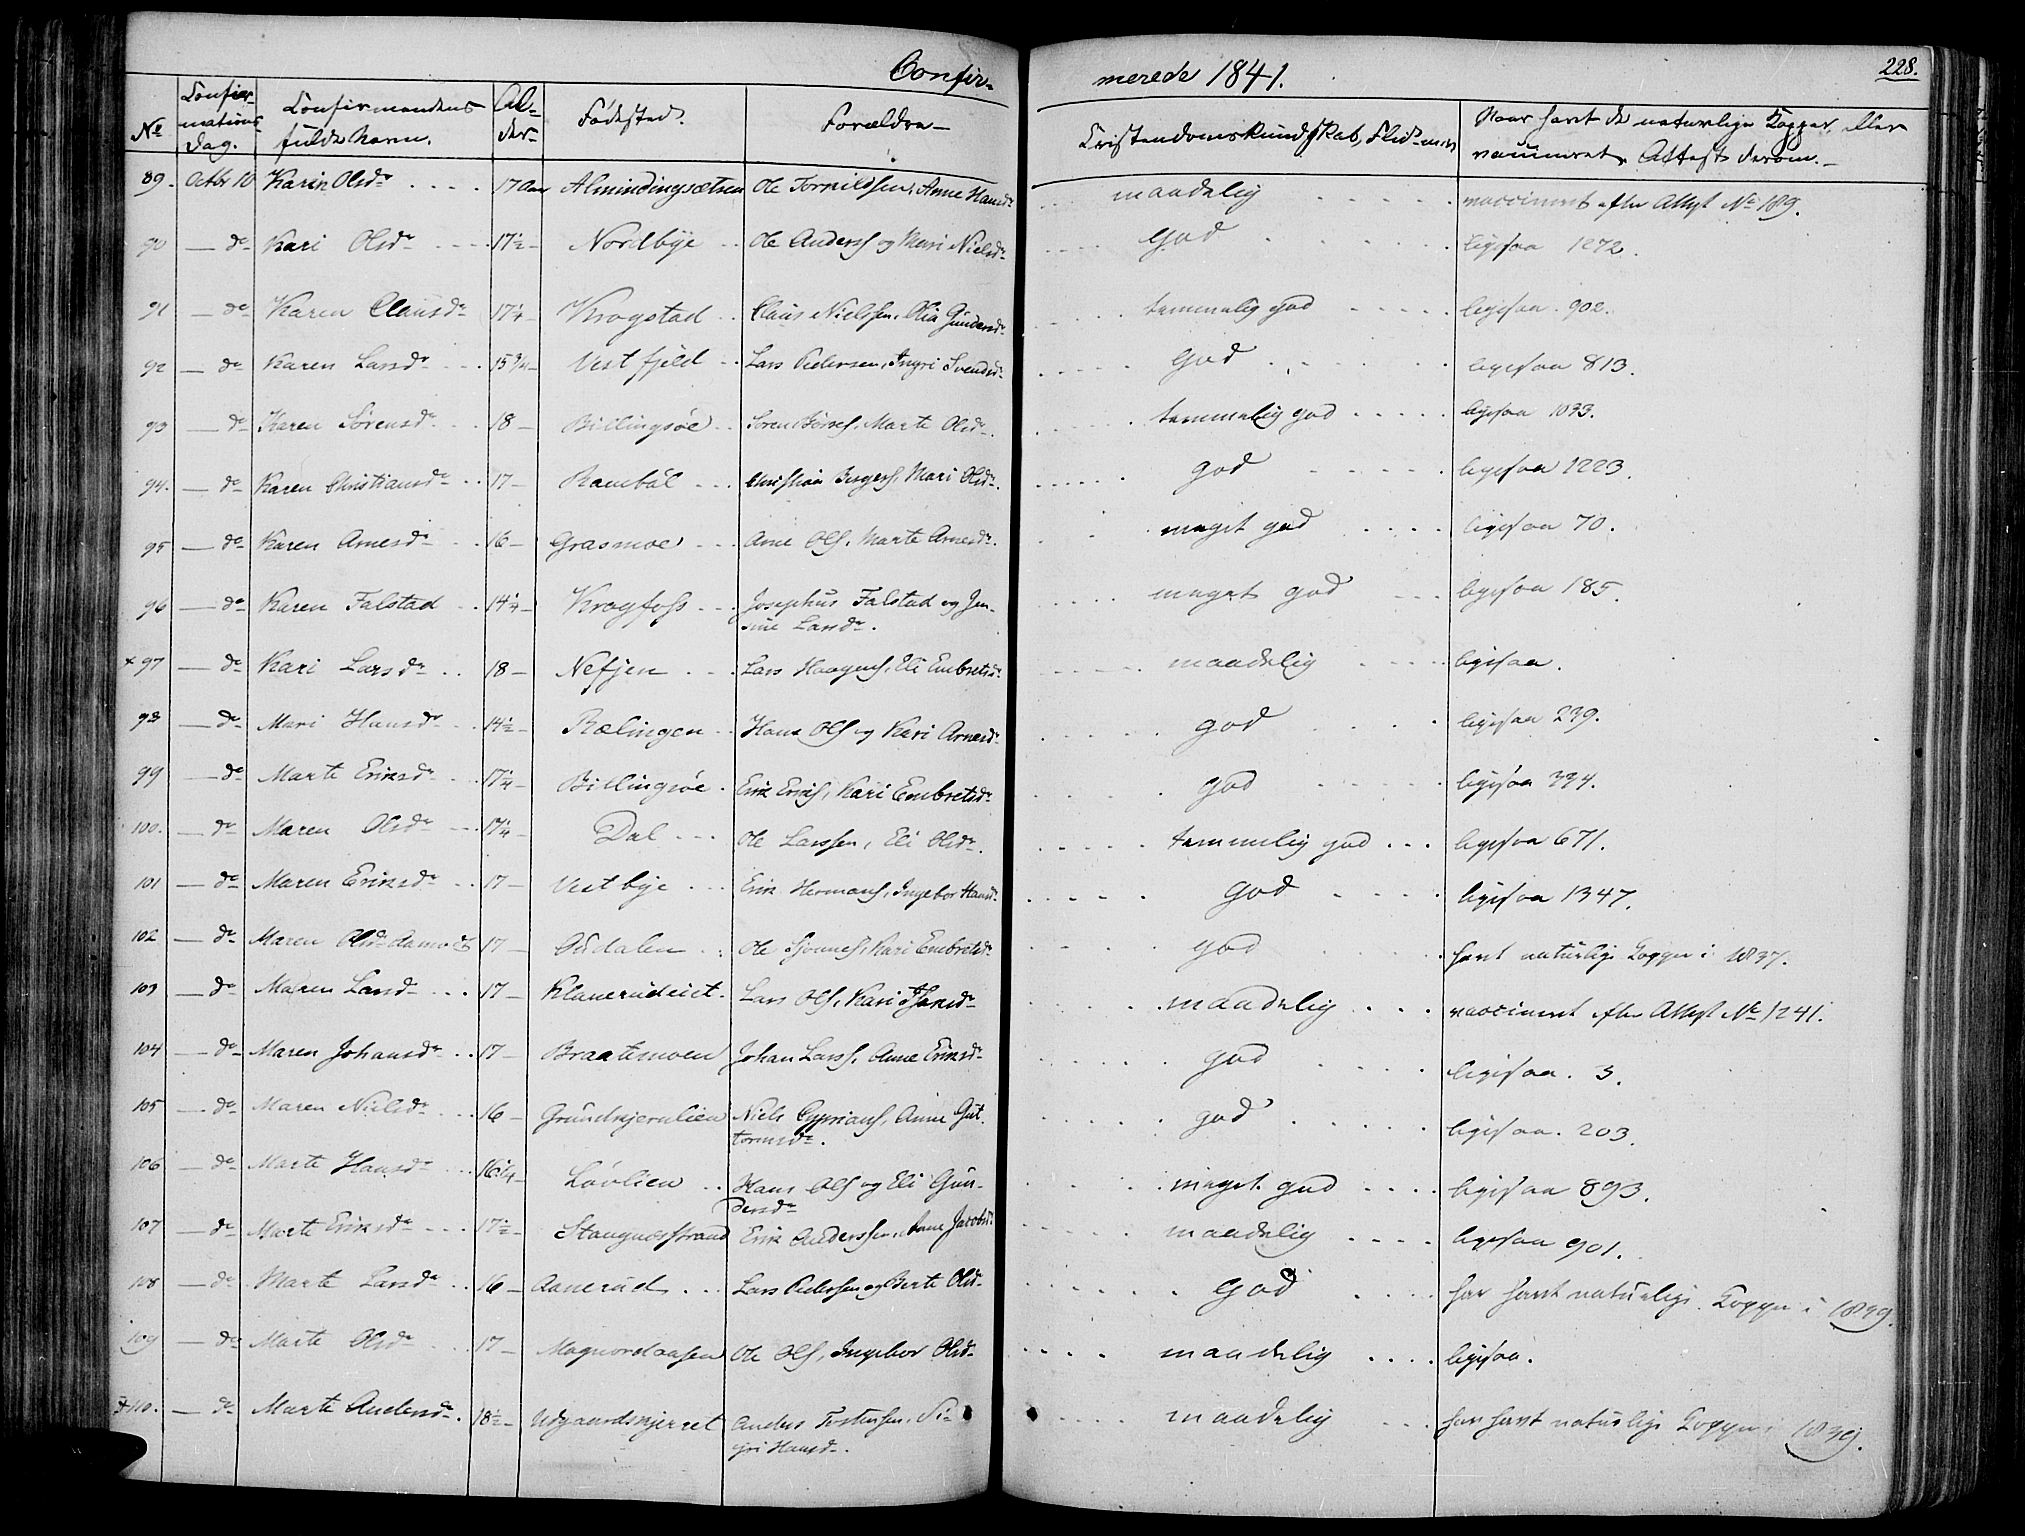 Confir-
merede 1841.
228.
No
Confir-
mations
Dag.
Confirmandens
fulde Navn.
Al-
der
Fødested.
Forældre
Cristendomskundskab, Flid
Naar havt de naturlige Kopper, eller
vaccineret, Attest derom.
89. Octbr 10 Karin Olsdr 17 Aar Almindingsætren Ole Anne Hansdr maadelig vaccineret efter Attest No 189.
90 do Kari Olsdr 17½ Nordbye Ole Anderss og Mari Nielsdr God ligesaa 1272.
91 do Karen Clausdr 17¼ Krogstad Claus Nielsen, Olia Gundersdr temmelig god ligesaa 902.
92 do Karen Larsdr 15¾ Vestfjeld Lars Pedersen, Ingri Svendsdr God ligesaa 813.
93 do Karen Sørensdr 18 Billingsøe Søren Marte Olsdr temmelig god ligesaa 1033.
94. do Karen Christiansdr 17 Rambøl Christian Mari Olsdr. god ligesaa 1223.
95 do Karen Arnesdr 16 Grasmoe Arne Ols, Marte Arnesdr. meget god ligesaa 70.
96 do Karen Falstad 14¼ Krogfoss Josephus Falstad og Jen-
sine Larsdr. meget god ligesaa 185.
+ 97 do Kari Larsdr 18 Nefjen Lars Haagens, Eli Embretsdr maadelig ligesaa.
98 do Mari Hansdr 14½ Rælingen Hans Ols og Kari Arnesdr god ligesaa 239.
99 do Marte Eriksdr 17¼ Billingsøe Erik Eriks, Kari Embretsdr god ligesaa 334.
100. do Maren Olsdr 17¼ Dal Ole Larssen, Eli Olsdr. temmelig god ligesaa 671.
101 do Maren Eriksdr 17 Vestbye Erik Hermans, Ingebor Hansdr God ligesaa 1347.
102 do Maren Olsdr 17 Ole Kari Embretsdr god havt naturlige Kopper i 1837.
103 do Maren Larsdr 17 Klanerudeiet Lars Ols, Kari maadelig vaccineret efter Attest No 1241.
104 do Maren Johansdr 17 Braatemoen Johan Larss, Anne Eriksdr god ligesaa. 3.
105 do Maren Nielsdr 16 Niels Cyprians, Anne Gut-
tormsdr. god ligesaa. 203.
106 do Marte Hansdr 16¼ Løvlien Hans Ols og Eli Gun-
dersdr meget god ligesaa 893.
107 do Marte Eriksdr 17½ Stangnesstrand Erik Anderssen, Anne Jacobsdr maadelig ligesaa 901.
108 do Marte Larsdr 16 Aanerud Lars Pederssen og Berte Olsdr God har havt naturlige Kopper i 1839.
109 do Marte Olsdr 17 Magnordaasen Ole Ols, Ingebor Olsdr maadelig ligesaa.
+ 110. do Marte Andersdr. 18½ Udgaardskjerret Anders Tostensen, Si-
gri Hansdr. maadelig har havt naturlige Kopper i 1839.